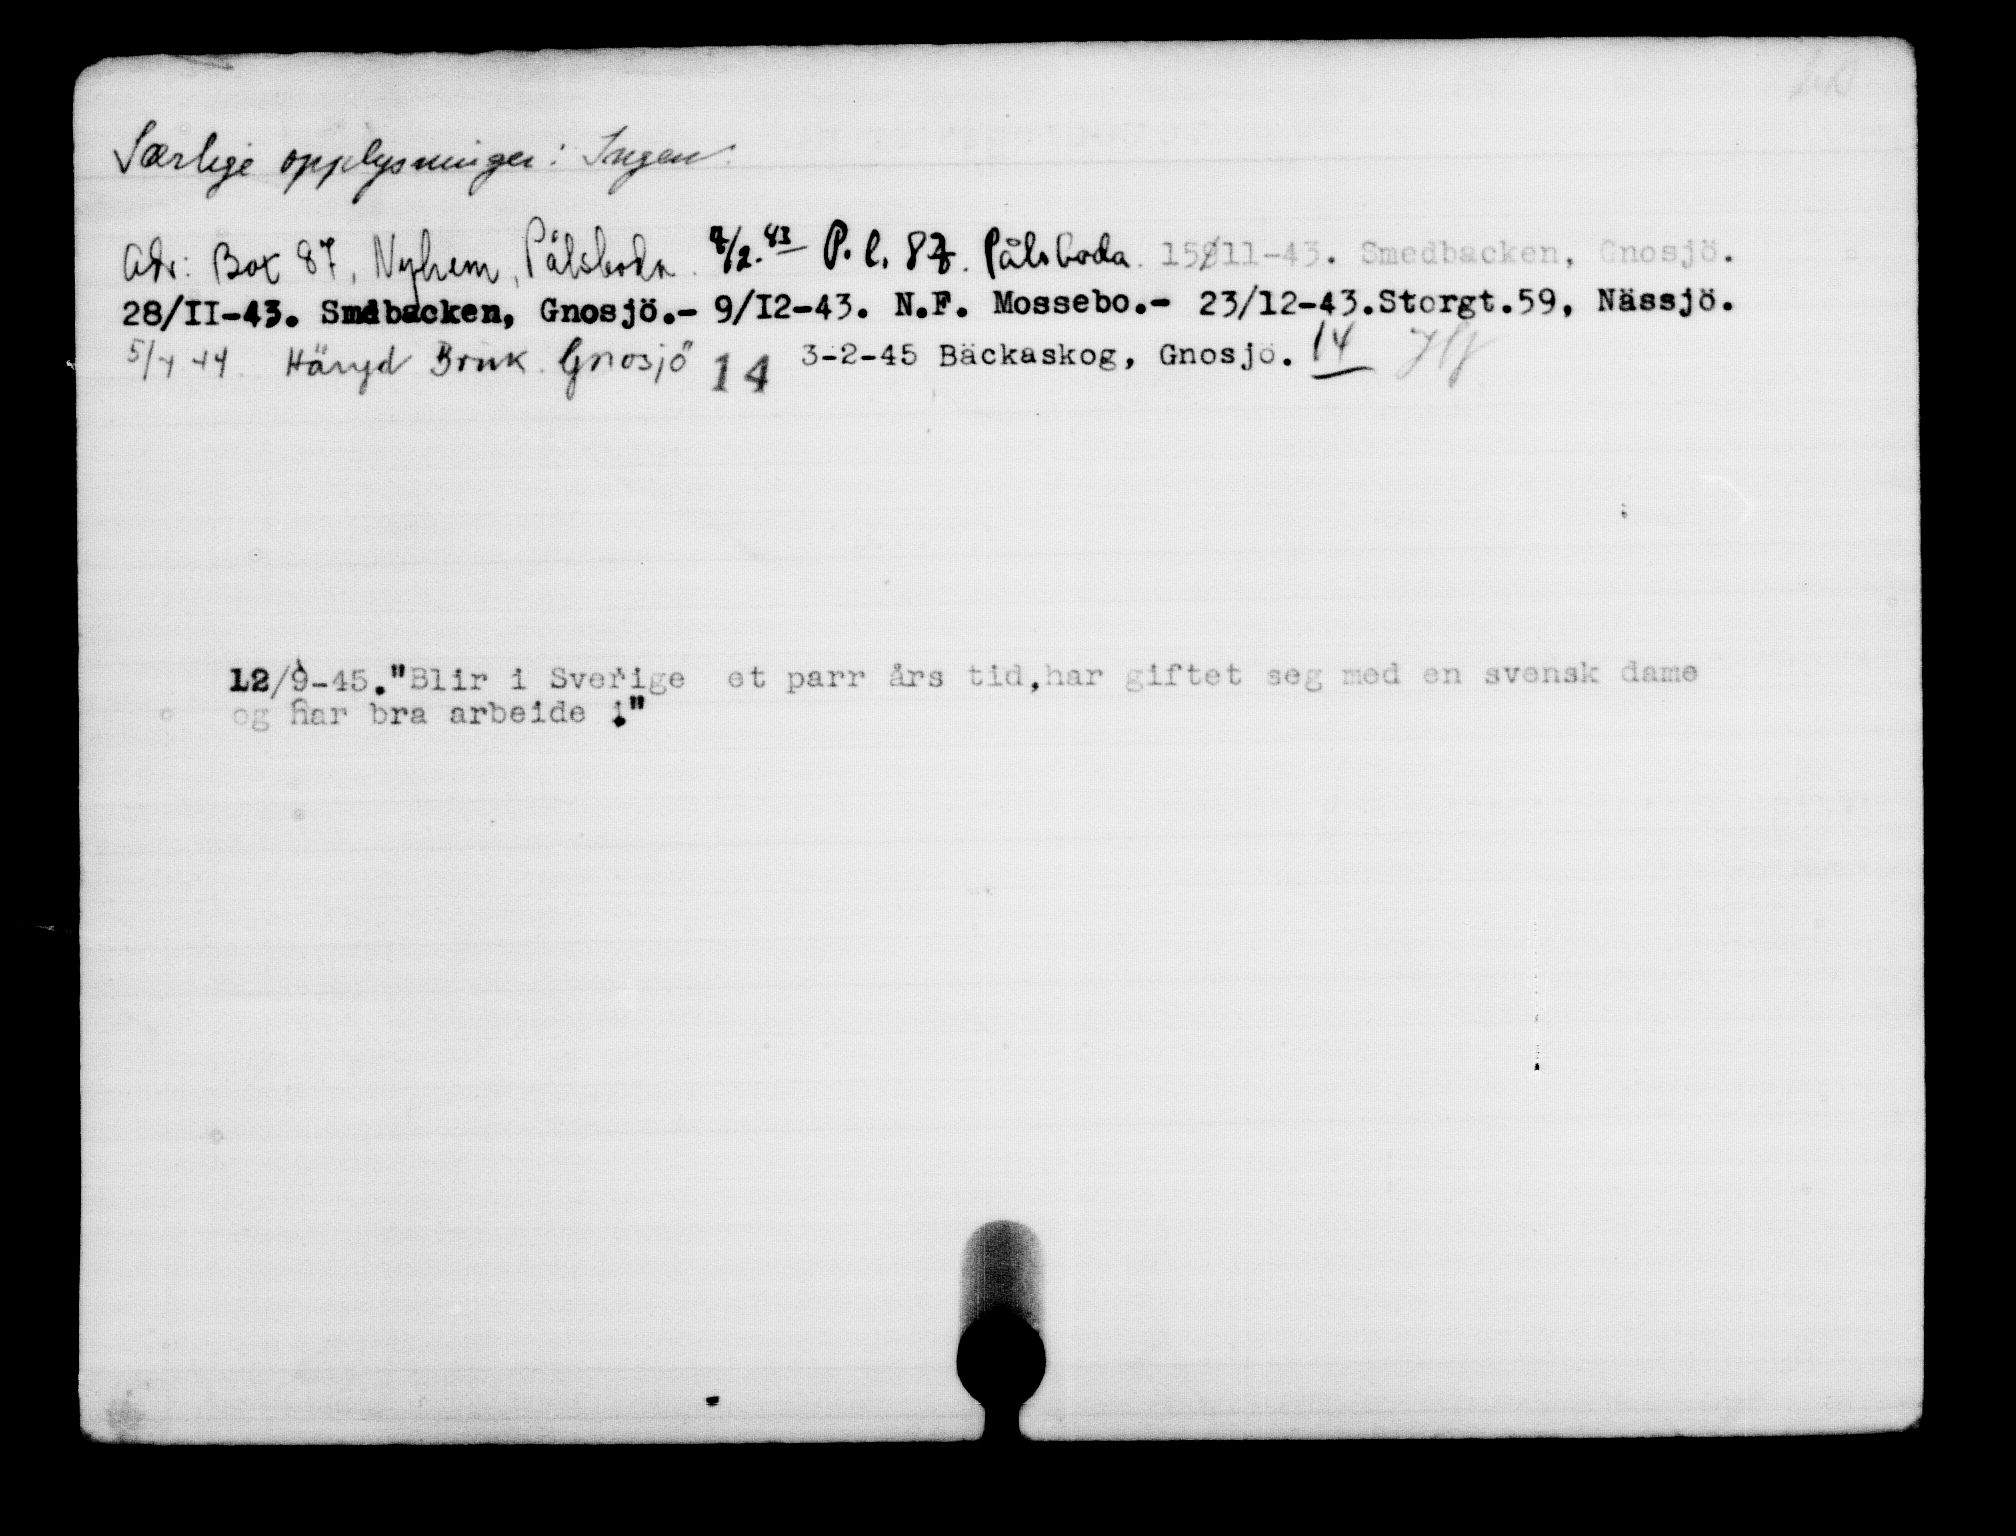 Særlige opplysninger: Ingen.
Adr: Box 87, Nyhem, Pålsboda. 7/2.-43 P.l. 87. Pålsboda. 15/11-43. Smedbacken, Gnosjö.
28/II-43. Smdbacken, Gnosjö.- 9/I2-43. N.F. Mossebo.- 23/12-43.Storgt.59, Nässjö.
5/4 44. Häryd Bruk. Gnosjö 14 3-2-45 Bäckaskog, Gnosjö. 14
12/9-45."Blir i Sverige et parr års tid,har giftet seg med en svensk dame
og har bra arbeide."